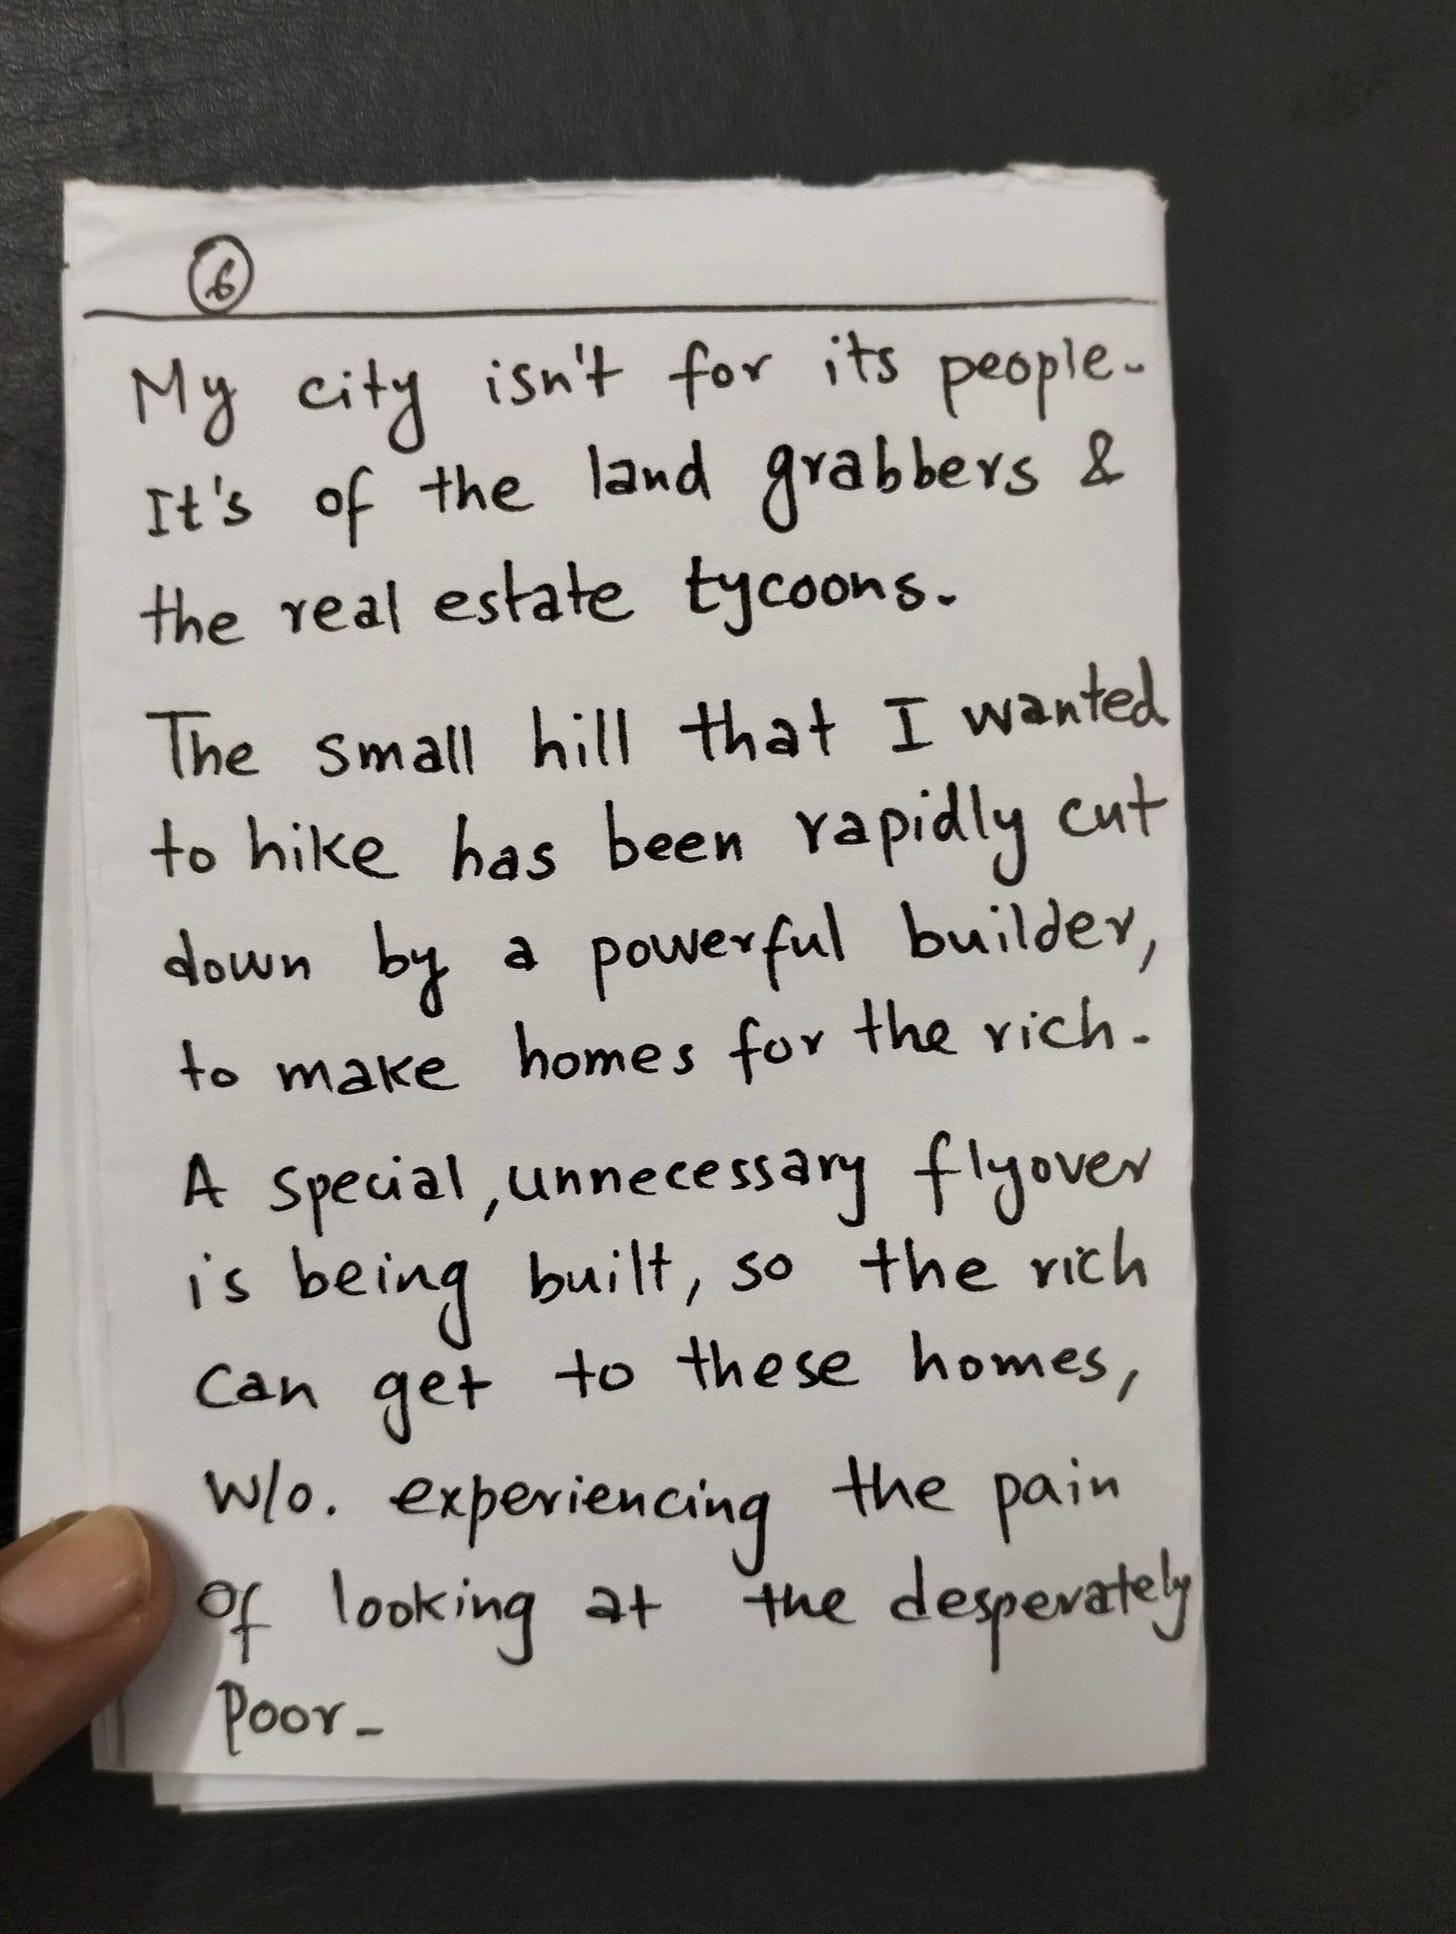 6
My city isn't for its people.
It's of the land grabbers &
the real estate tycoons.
The small hill that I wanted
to hike has been rapidly cut
down by a powerful builder,
to make homes for the rich.
A special, unnecessary flyover
is being built, so the rich
can get to these homes,
w/o. experiencing the pain
of looking at the desperately
poor.